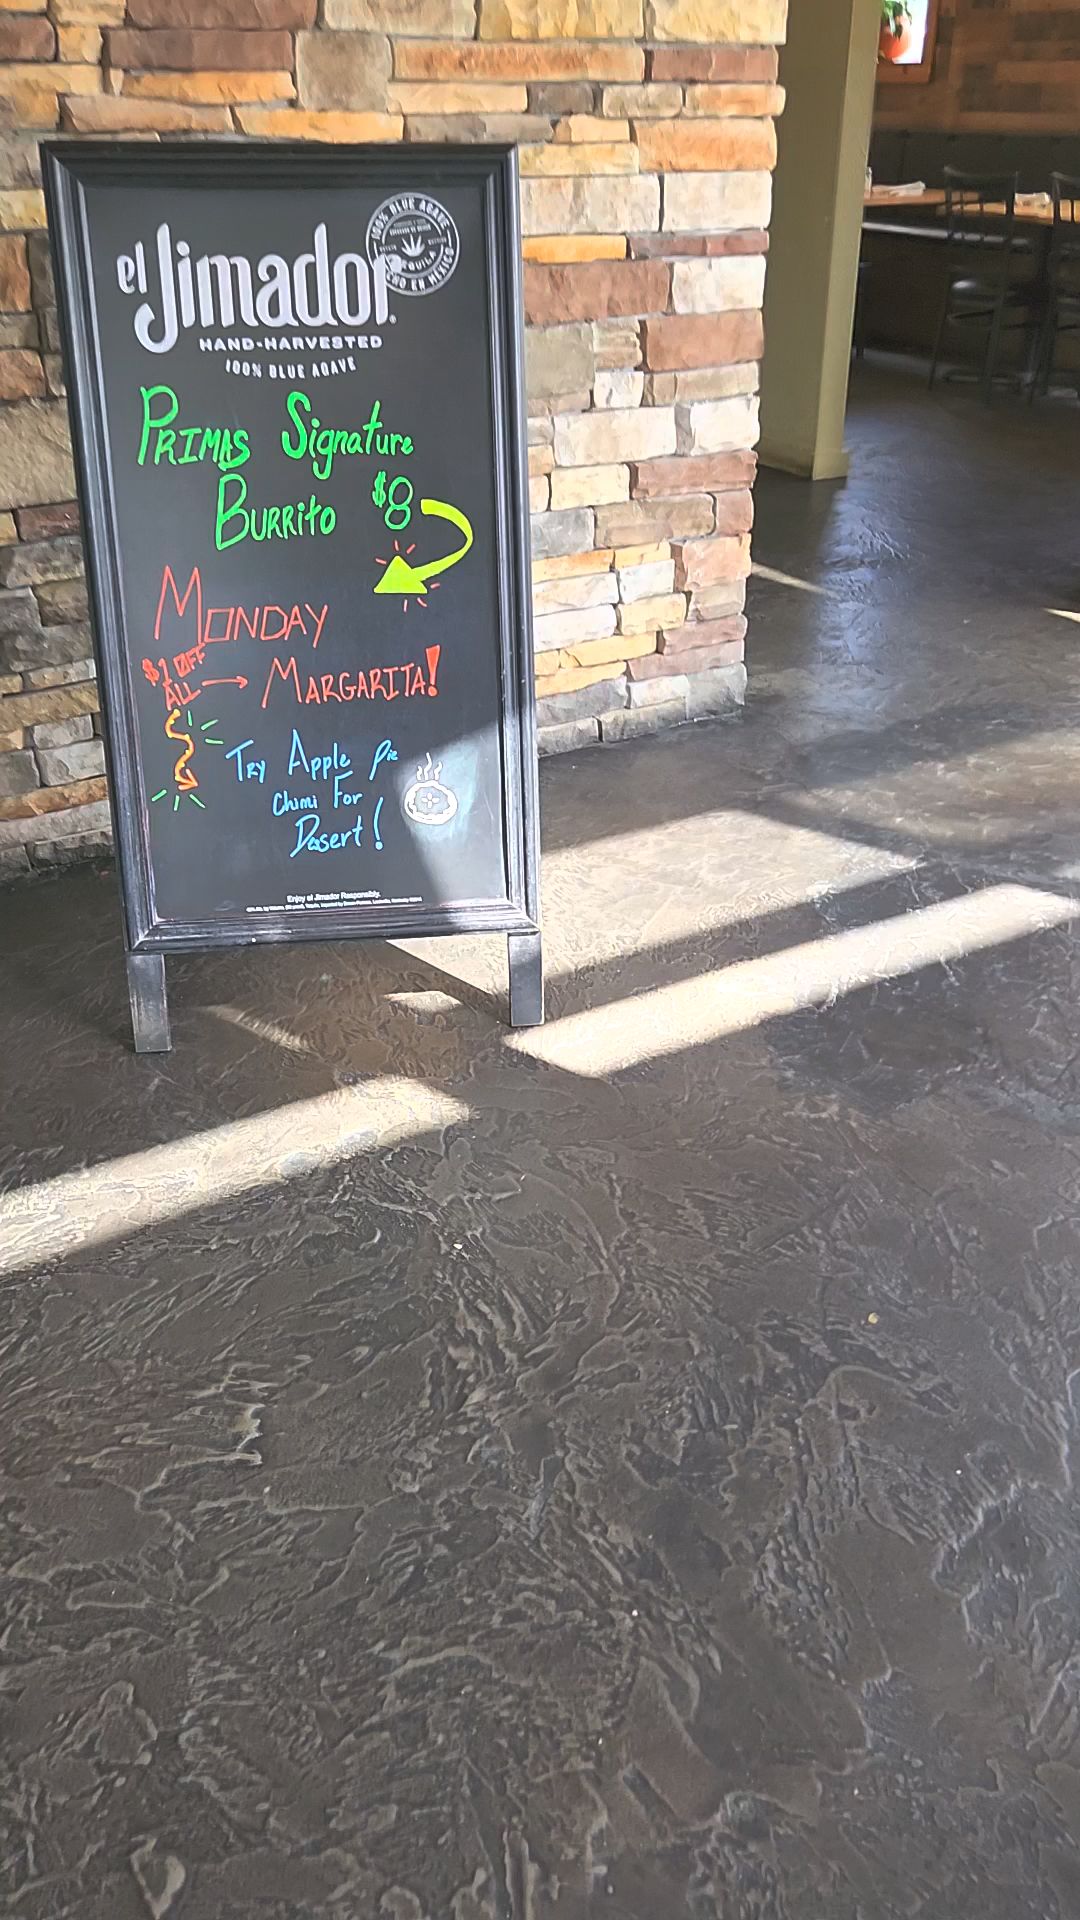 el Jimador
100% BLUE AGAVE
TEQUILA
HECHO EN MÉXICO
HAND-HARVESTED
100% BLUE AGAVE
PRIMAS Signature
BURRITO $8
MONDAY
$1 OFF
ALL → MARGARITA!
TRY Apple Pie
Chimi For
Desert!
Enjoy el Jimador Responsibly.